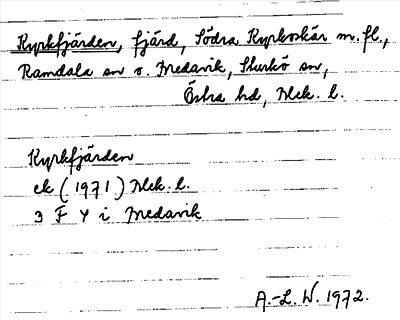 Kyrkfjärden, fjärd, Södra Kyrkoskär m. fl.,
Ramdala sn o. Medavik, Sturkö sn,
Östra hd, Blek. l.
Kyrkfjärden
ek (1971) Blek. l.
3 F Y i Medavik
A.-L. W. 1972.